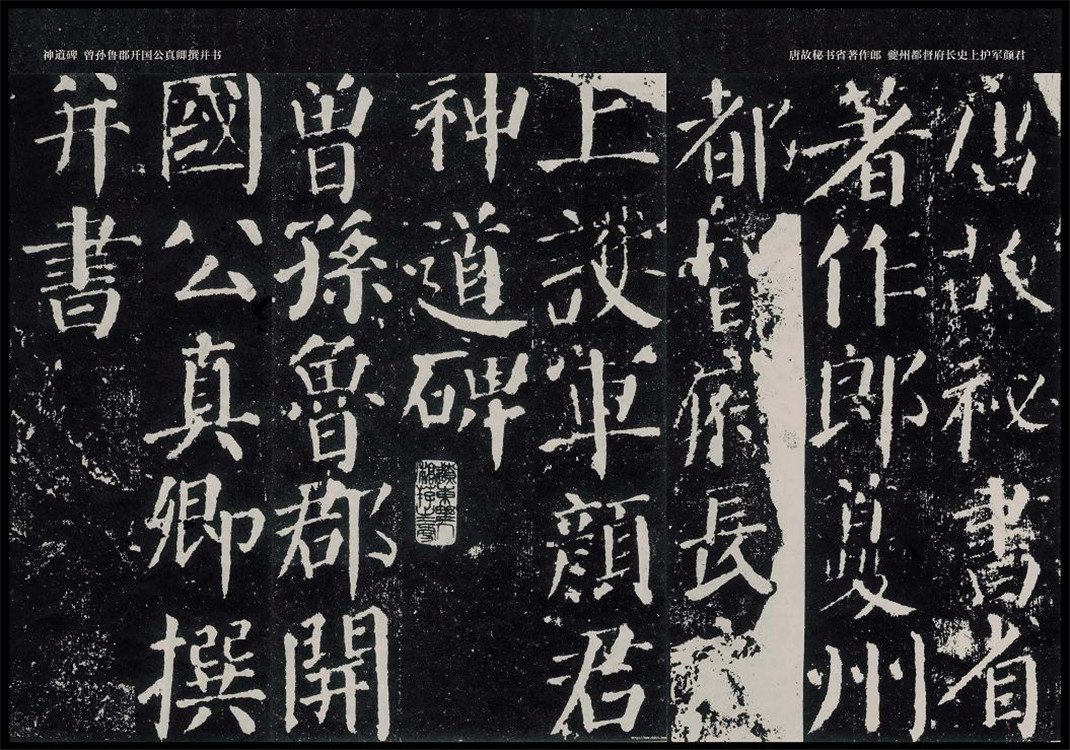 唐故秘书省著作郎 夔州都督府长史上护军颜君
神道碑 曾孙鲁郡开国公真卿撰并书
唐故祕書省
著作郎夔州
都督府長
上護軍顔君
神道碑
曾孫魯郡開
國公真卿撰
并書